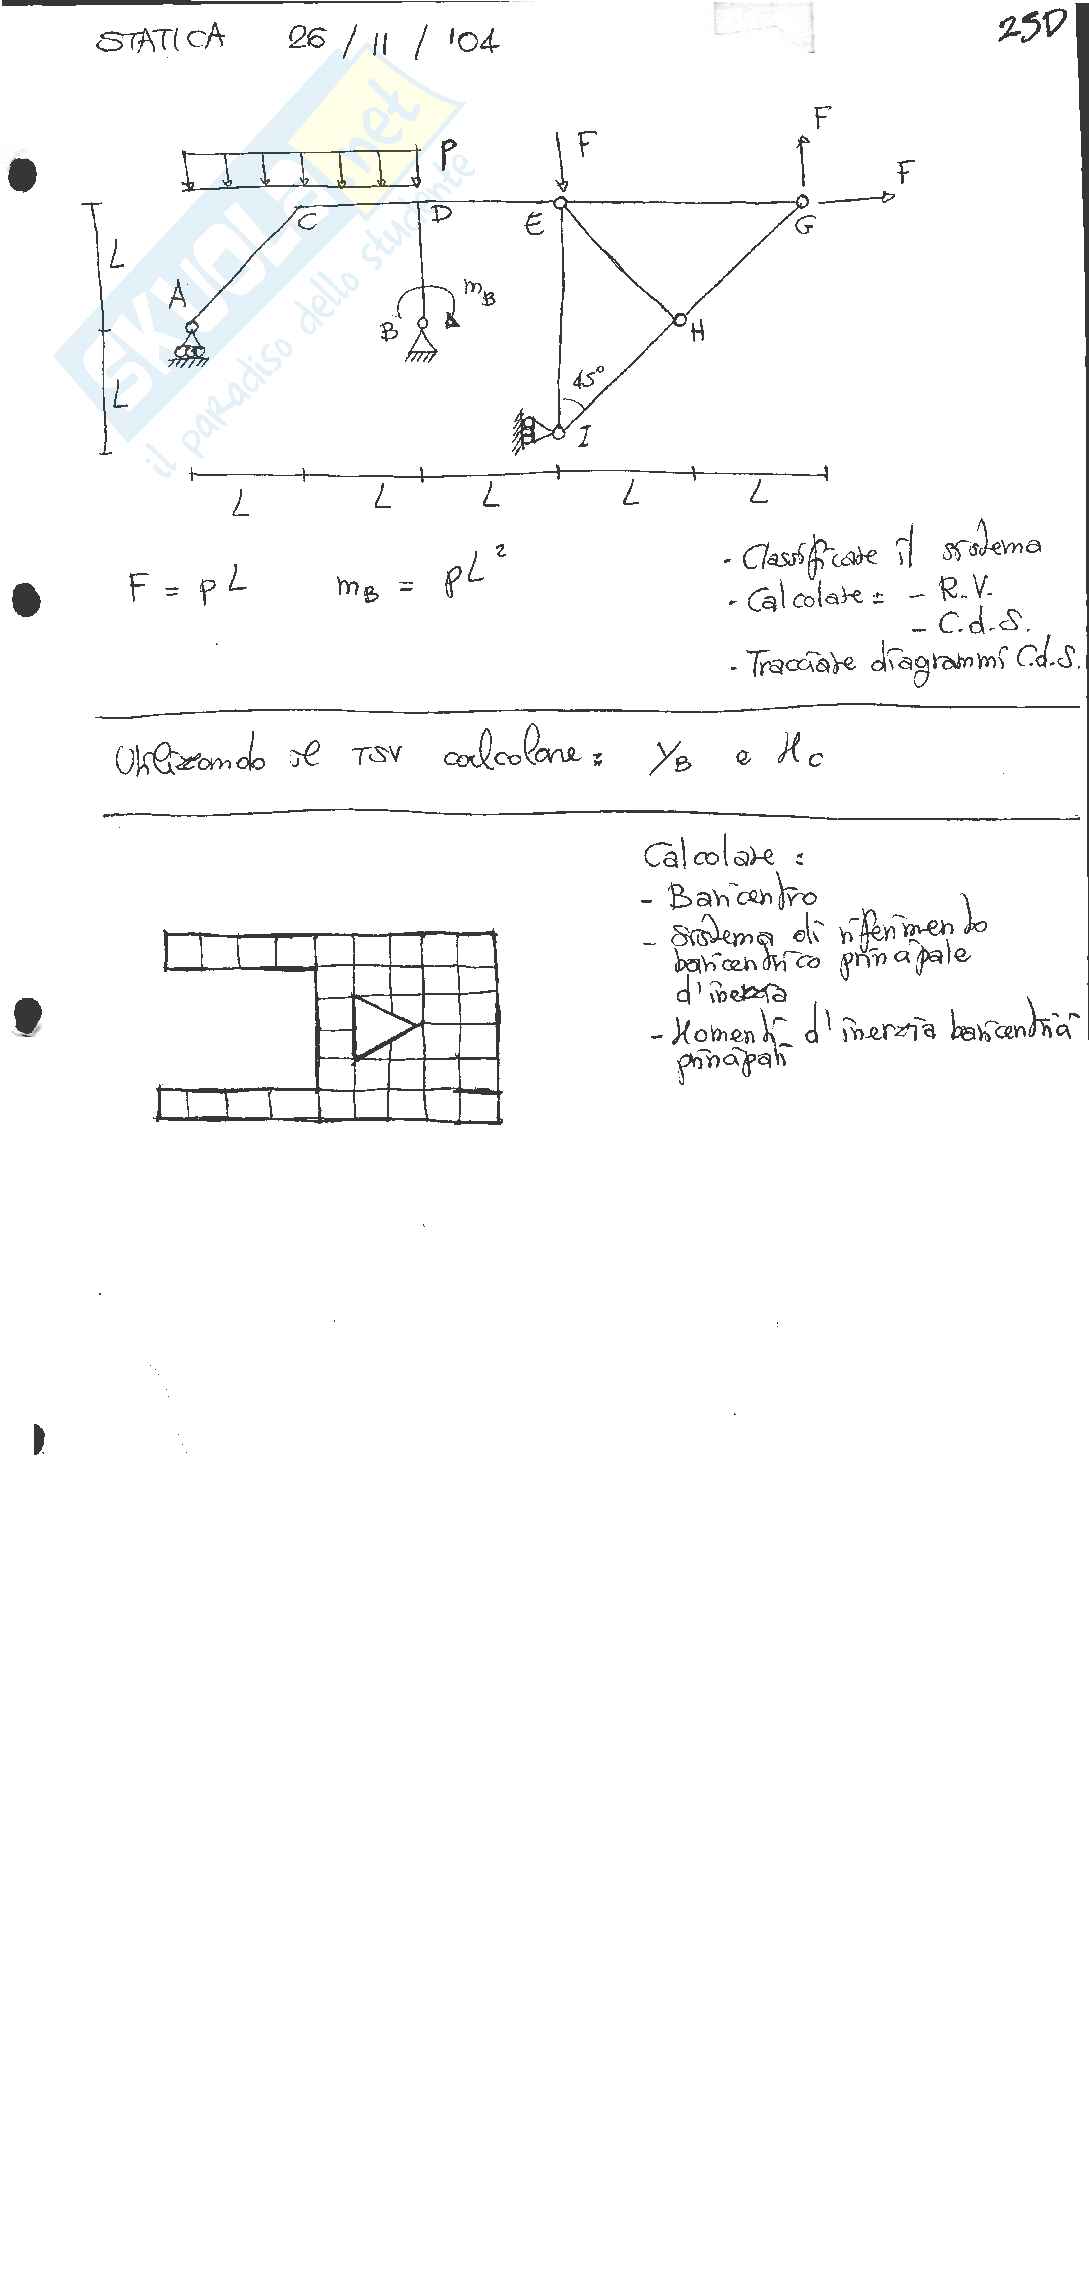 STATICA 26 / 11 / '04
25D
P
F
F
F
C
D
E
G
L
A
mB
B
H
L
45°
I
L
L
L
L
L
F = pL
mB = pL²
- Classificare il sistema
- Calcolare: - R.V.
- C.d.S.
- Tracciare diagrammi C.d.S.
Utilizzando il TSV calcolare: YB e MC
Calcolare:
- Baricentro
- Sistema di riferimento
baricentrico principale
d'inerzia
- Momenti d'inerzia baricentrici
principali
SKUOLA.net
il paradiso dello studente